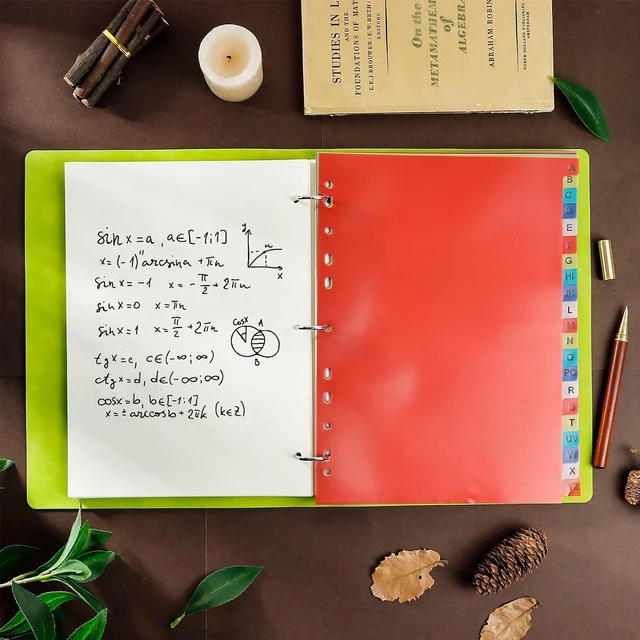 STUDIES IN L
AND THE
FOUNDATIONS OF MAT
L.E.J.BROUWER/E.W.BETH/
EDITORS
On the
METAMATHEM
of
ALGEBRA
ABRAHAM ROBIN
NORTH-HOLLAND PUBLISHING
AMSTERDAM
sin x = a, a∈[-1;1]
x = (-1)ⁿ arcsin a + πn
sin x = -1 x = -π/2 + 2πn
sin x = 0 x = πn
sin x = 1 x = π/2 + 2πn
tg x = c, c∈(-∞;∞)
ctg x = d, d∈(-∞;∞)
cos x = b, b∈[-1:1]
x = ± arccos b + 2πk (k∈Z)
y
n
x
cosx A
B
A
B
C
D
E
F
G
HI
JK
L
M
N
O
PQ
R
S
T
UV
W
X
YZ